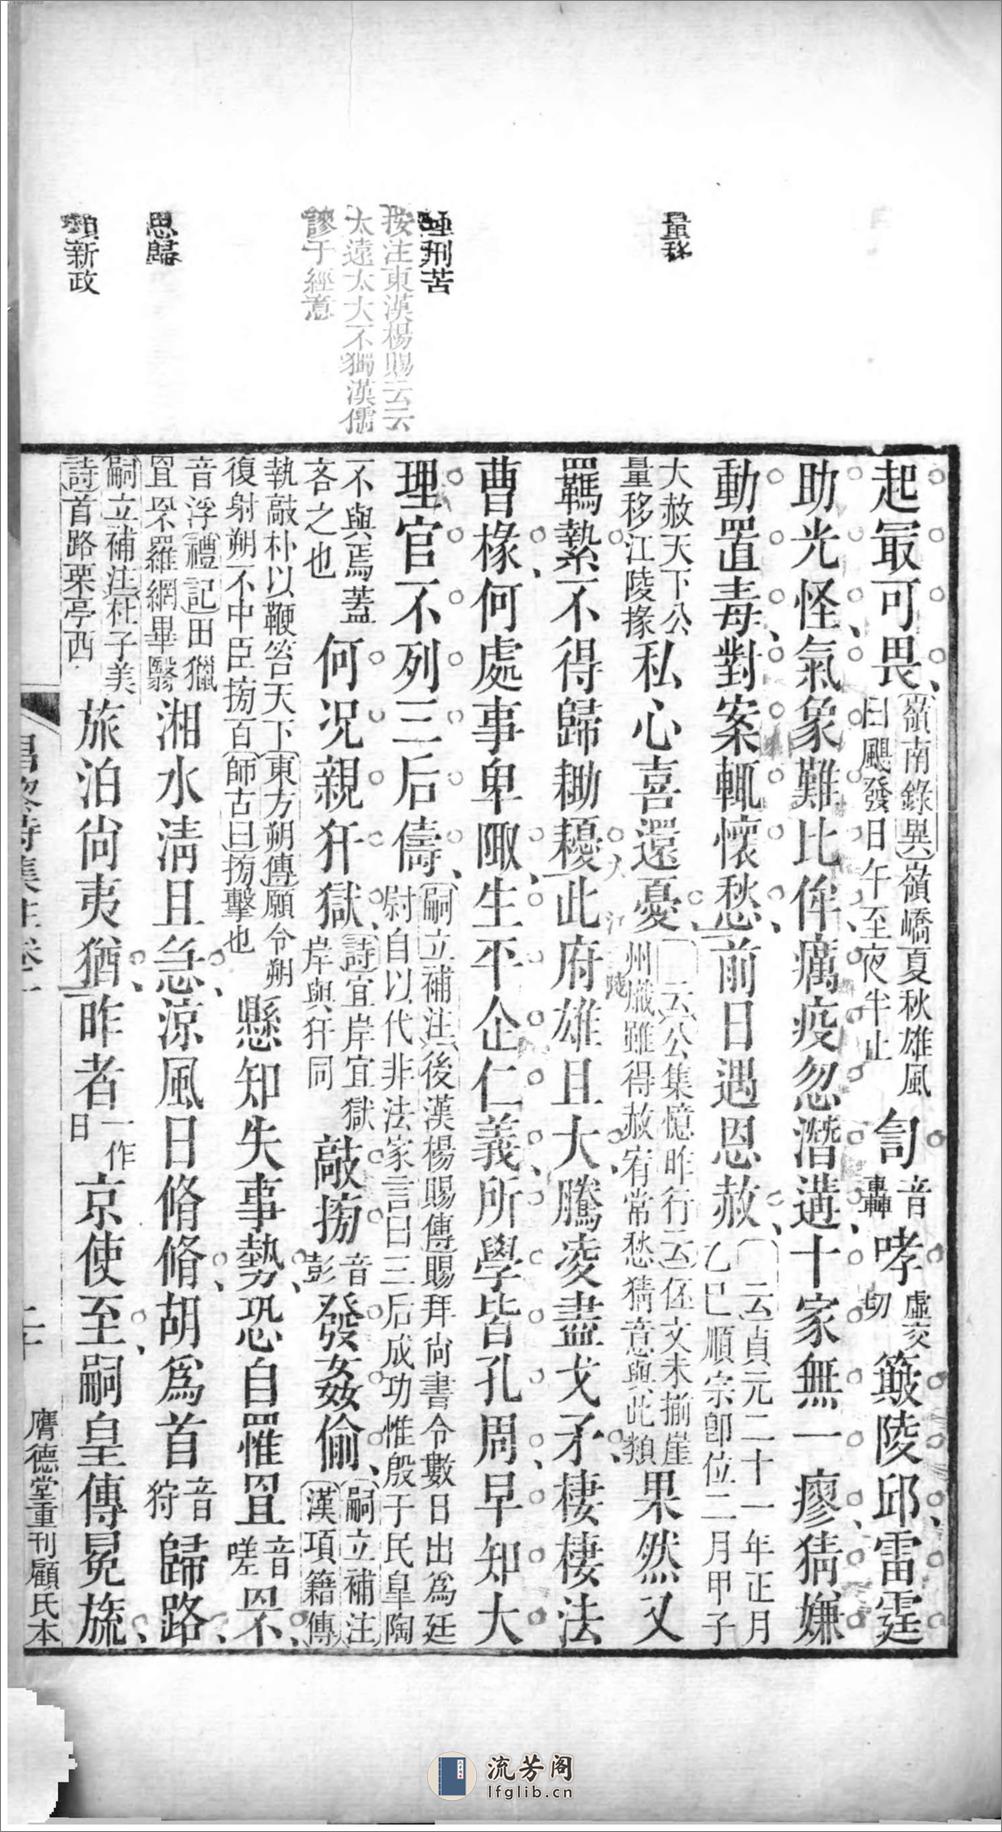 量移
極刑苦
按注東漢楊賜云云
太遠太大不獨漢儒
謬于經意
思歸
頌新政
起㝡可畏嶺南錄異嶺嶠夏秋雄風曰颶發日午至夜半止訇音轟哮虛交切簸陵邱雷霆
助光怪氣象難比侔癘疫忽潛遘十家無一瘳猜嫌
動置毒對案輒懷愁前日遇恩赦云貞元二十一年正月乙巳順宗卽位二月甲子
大赦天下公量移江陵掾私心喜還憂云公集憶昨行云伾文未揃崖州熾雖得赦宥常愁猜意與此類果然又
羈縶不得歸鋤耰此府雄且大騰凌盡戈矛棲棲法
曹掾何處事卑陬生平企仁義所學皆孔周早知大
理官不列三后儔嗣立補注後漢楊賜傳賜拜尚書令數日出爲廷尉自以代非法家言曰三后成功惟殷于民皋陶
不與焉蓋吝之也何况親犴獄詩宜岸宜獄岸與犴同敲搒音彭發姦偷嗣立補注漢項籍傳
執敲朴以鞭笞天下東方朔傳願令朔復射朔不中臣搒百師古曰搒擊也懸知失事勢恐自罹罝音嗟罘
音浮禮記田獵罝罘羅網畢翳湘水淸且急涼風日脩脩胡爲首音狩歸路
嗣立補注杜子美詩首路栗亭西旅泊尙夷猶昨者一作日京使至嗣皇傳冕旒
昌黎詩集注卷一
二十
膺德堂重刊顧氏本
流芳阁
lfglib.cn